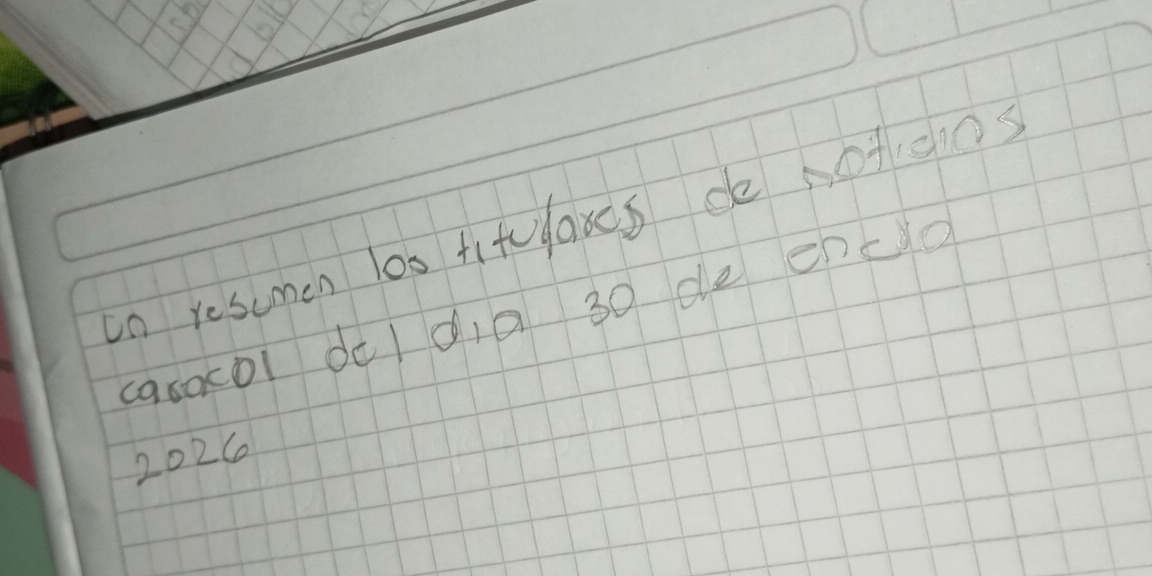 un resumen los titulares de noticias
caracol del dia 30 de enero
2026